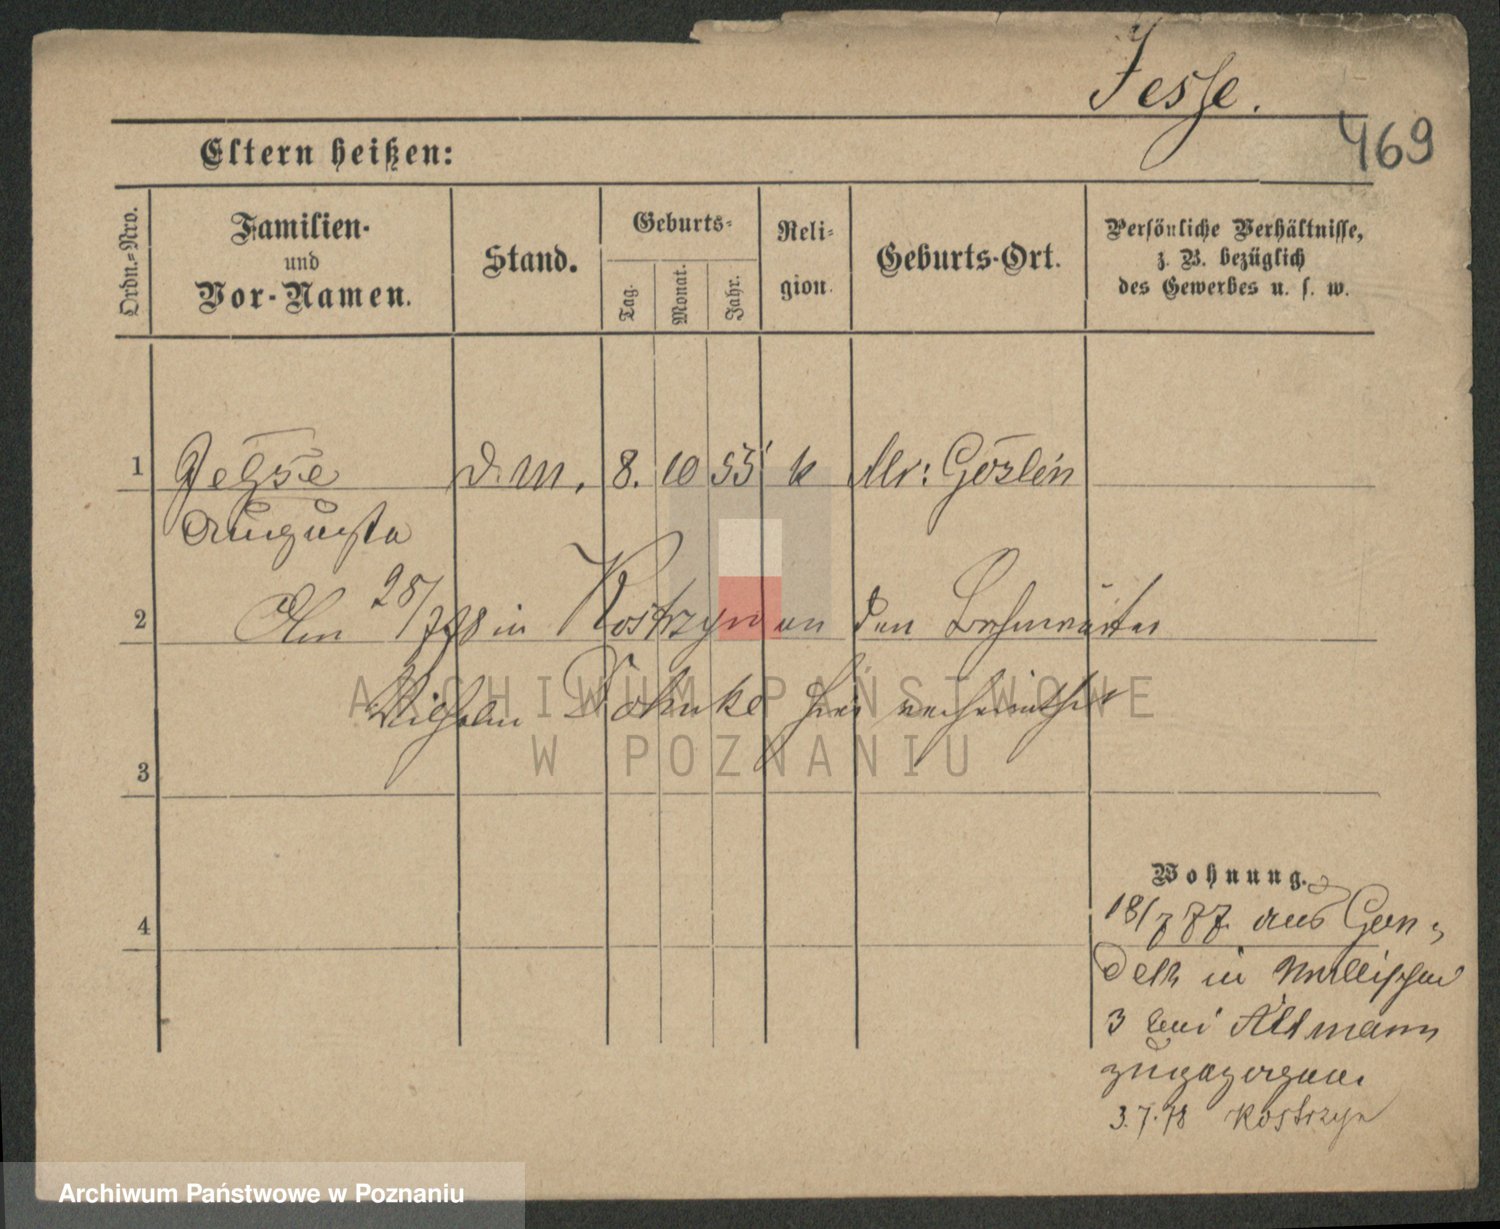 Jesse.
469
Eltern heißen:
Ordn.-Nro.
Familien- und Vor-Namen.
Stand.
Geburts-
Tag.
Monat.
Jahr.
Reli-
gion.
Geburts-Ort.
Persönliche Verhältnisse,
z. B. bezüglich
des Gewerbes u. s. w.
1 D. M. 8. 10 55 k Kr: Goslin
Augusta
2 Am 28/7 78 in Kostrzyn an den
Wilhelm hier verheirathet
3
4
Wohnung.
18/7 77. aus
in
3 bei Altmann
zugezogen
3.7.78 Kostrzyn
ARCHIWUM PAŃSTWOWE
W POZNANIU
Archiwum Państwowe w Poznaniu